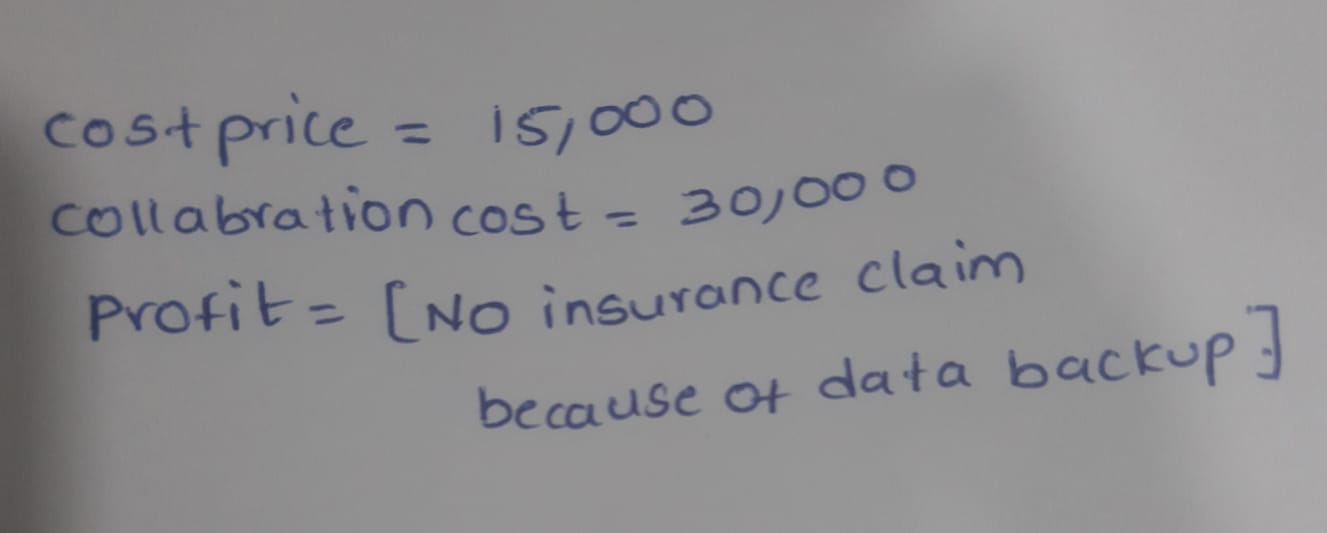 cost price = 15,000
collabration cost = 30,000
Profit = [No insurance claim
because of data backup]